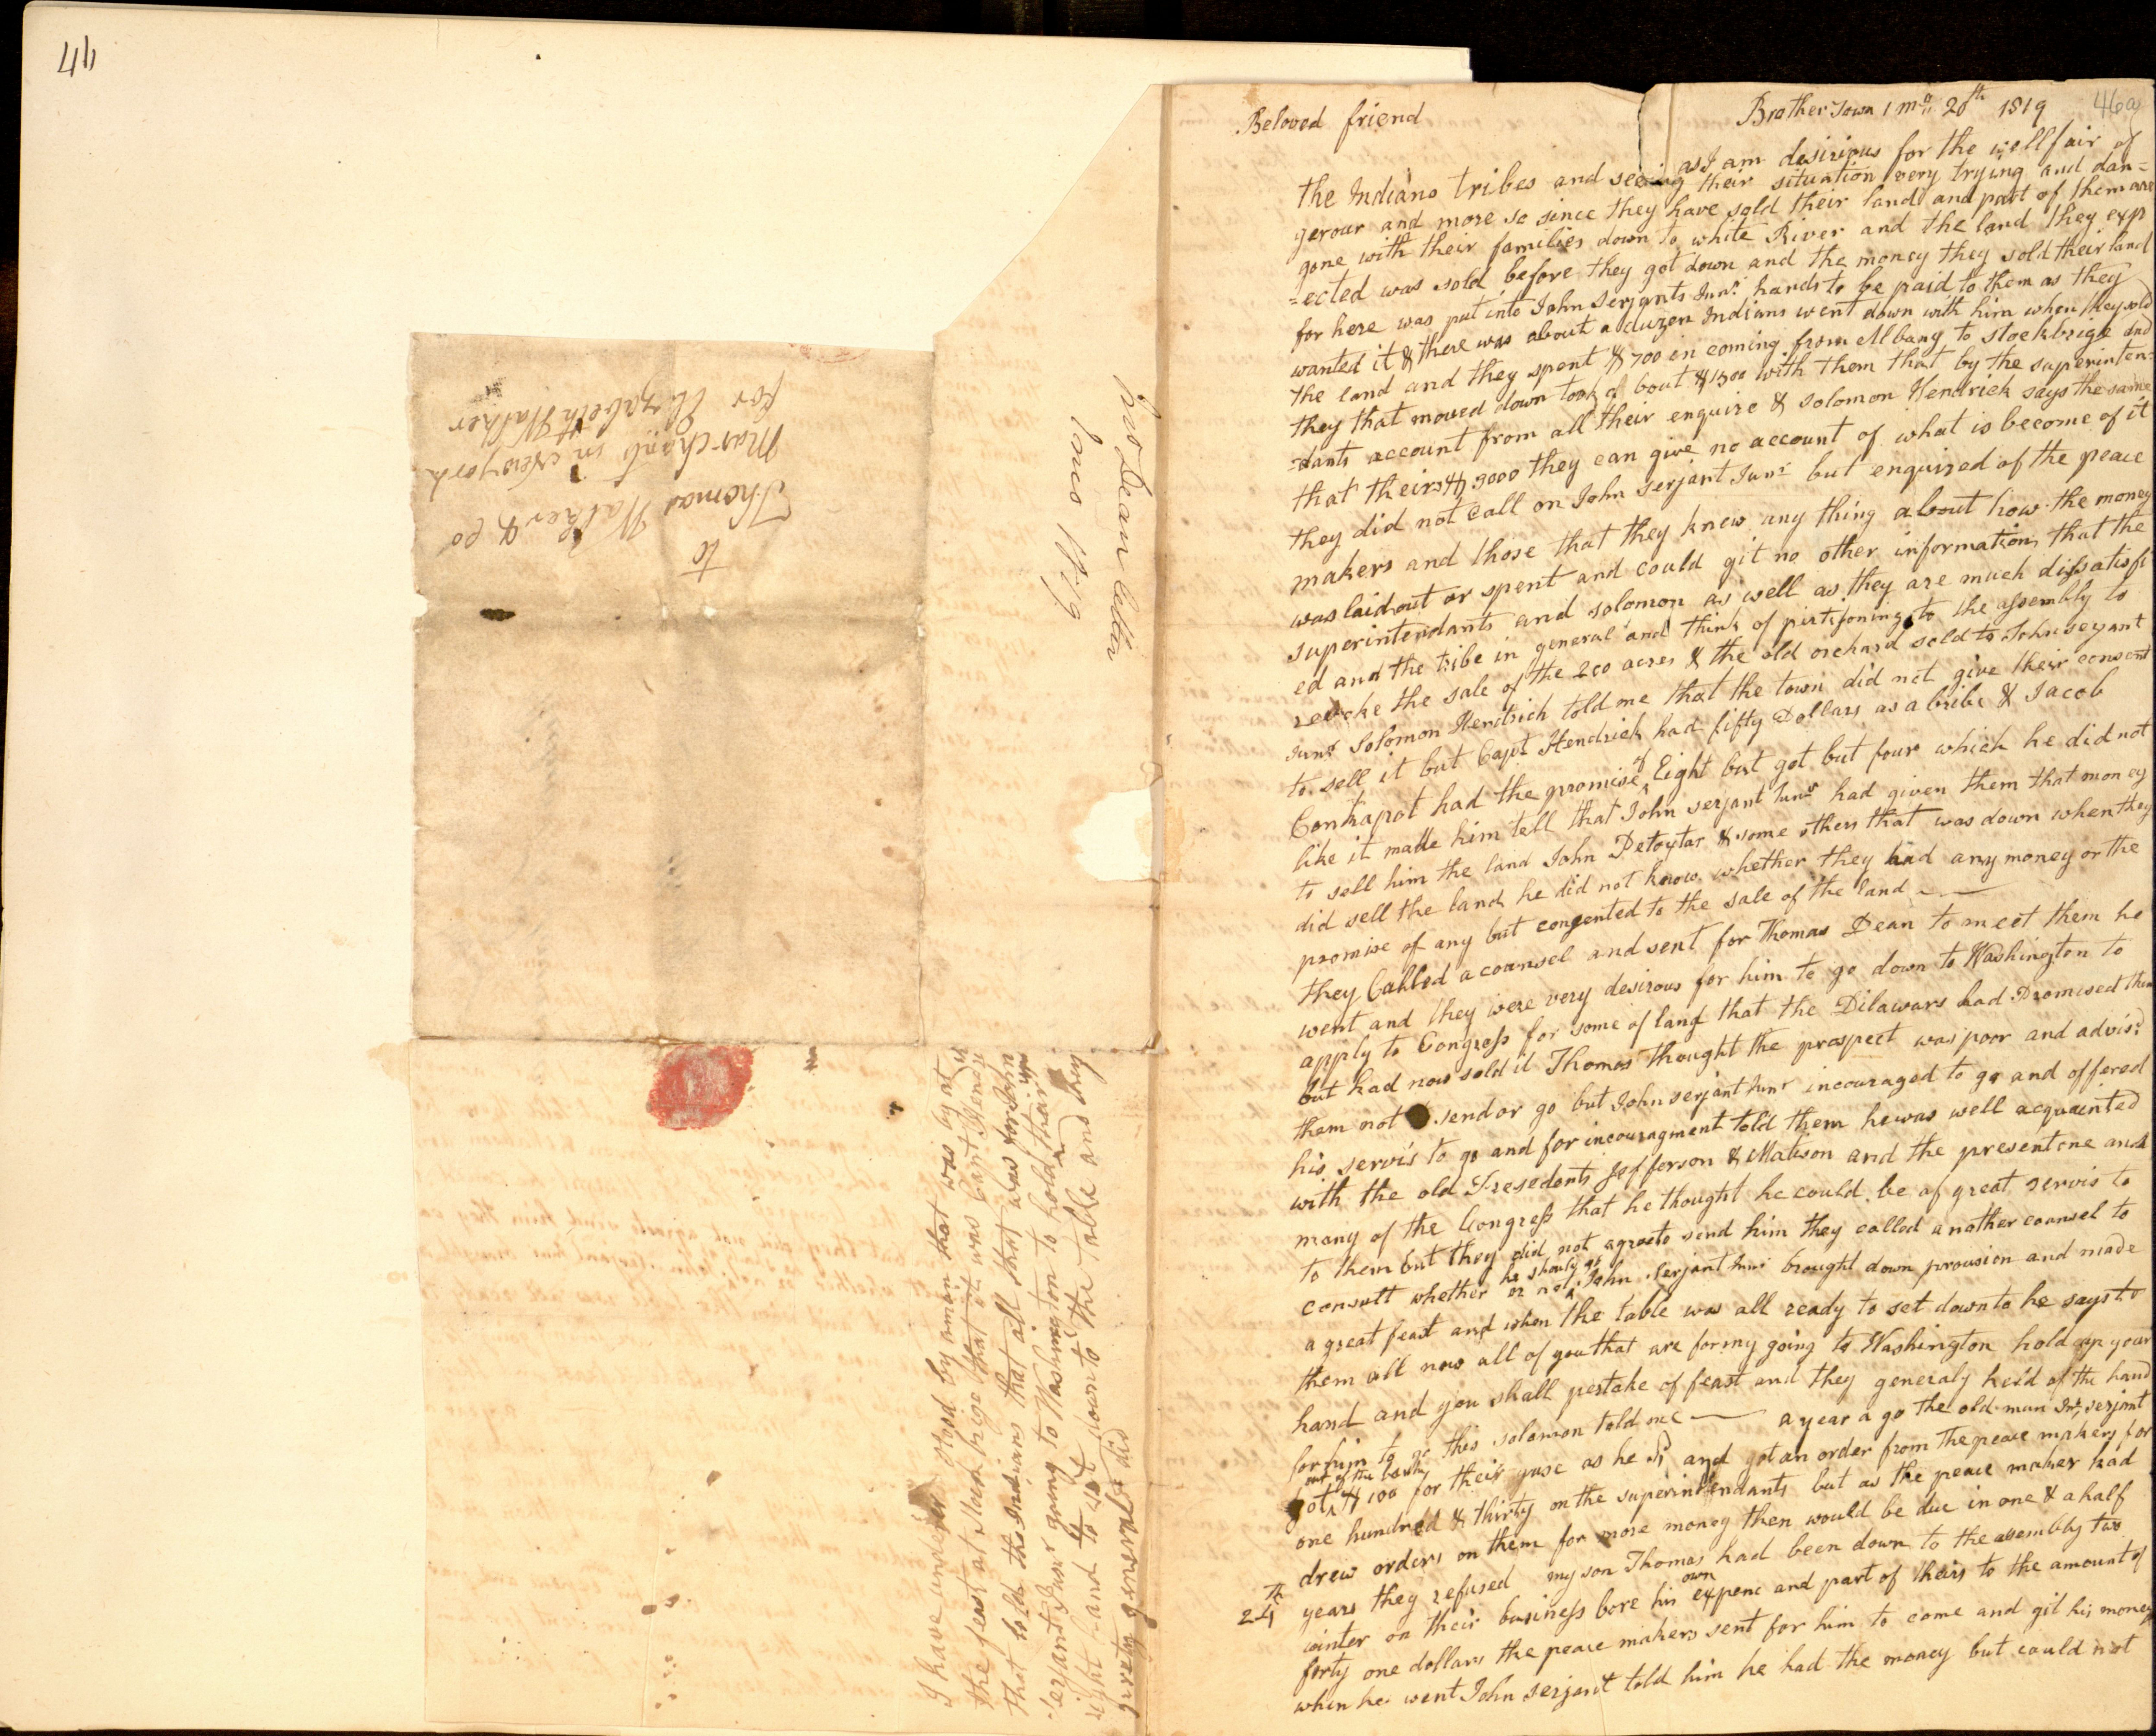 44
46a
Beloved friend
Brother Town 1 mo. 20th 1819
as I am desirious for the wellfair of
the Indians tribes and seeing their situation very trying and dan=
gerour and more so since they have sold their land and part of them are
gone with their families down to white River and the land they exp
=ected was sold before they got down and the money they sold their land
for here was put into John Serjants Junr. hands to be paid to them as they
wanted it & there was about a duzen Indians went down with him when they sold
the land and they spent $700 in coming from Albany to stockbrige and
they that moved down took a bout $1500 with them that by the superinten=
-dants account from all their enquire & solomon Hendrick says the same
that theirs $3000 they can give no account of what is become of it
they did not call on John Serjant Junr but enquired of the peace
makers and those that they knew any thing about how the money
was laid out or spent and could git no other information that the
superintendants and solomon as well as they are much dissatisfi
ed and the tribe in general and think of pirtisoning to the assembly to
revoke the sale of the 200 acres & the old orchard sold to John serjant
Junr Solomon Hendrich told me that the town did not give their consent
to sell it but Capt Hendrick had fifty Dollars as a bribe & Jacob
Conkapot had the promise of Eight but got but four which he did not
like it made him tell that John serjant Junr had given them that money
to sell him the land John Detoytar & some others that was down when they
did sell the land he did not know whether they had any money or the
promise of any but consented to the sale of the land
they Called a counsel and sent for Thomas Dean to meet them he
went and they were very desirous for him to go down to Washington to
apply to Congress for some of land that the Dilawars had Promised them
but had now sold it Thomas thought the prospect was poor and advisd
them not send or go but John serjant Junr incouraged to go and offered
his servis to go and for incouragment told them he was well acquainted
with the old Presedents Jefferson & Matison and the present one and
many of the Congress that he thought he could be of great servis to
to them but they did not agree to send him they called another counsel to
consult whether he should go or not John Serjant Junr brought down provision and made
a great feast and when the table was all ready to set down to he says to
them all now all of you that are for my going to Washington hold up your
hand and you shall pertake of feast and they generaly heis'd of the hand
for him to go this solomon told me a year a go the old man Jno. serjant
got out of the bank $100 for their use as he sd and got an order from The peace makers for
one hundred & thirty on the superintendants but as the peace maker had
drew orders on them for more money then would be due in one & a half
years they refused my son Thomas had been down to the assembly two
24th
winter on their business bore his own expenc and part of theirs to the amount of
forty one dollars the peace makers sent for him to come and git his money
when he went John serjant told him he had the money but could not
to
Thomas Walker & Co
Marchants in Newyork
for Elizabeth Walker
Jno Dean letter
1 mo 1819
I have under stood by a man that was by at
the feast at Stockbrige that it was Capt Hendrick
that told the Indians that all that was for John
serjant Junr going to Washington to hold up their
right hand and to set down to the table and they
prety general did